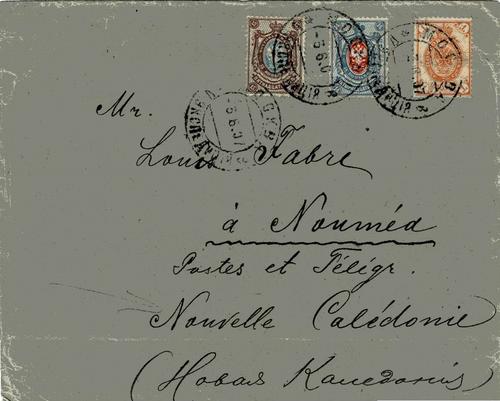 МОСКВА
5.6.07
Mr.
Louis Fabre
à Nouméa
Postes et Télégr.
Nouvelle Calédonie
(Новая Каледонія)